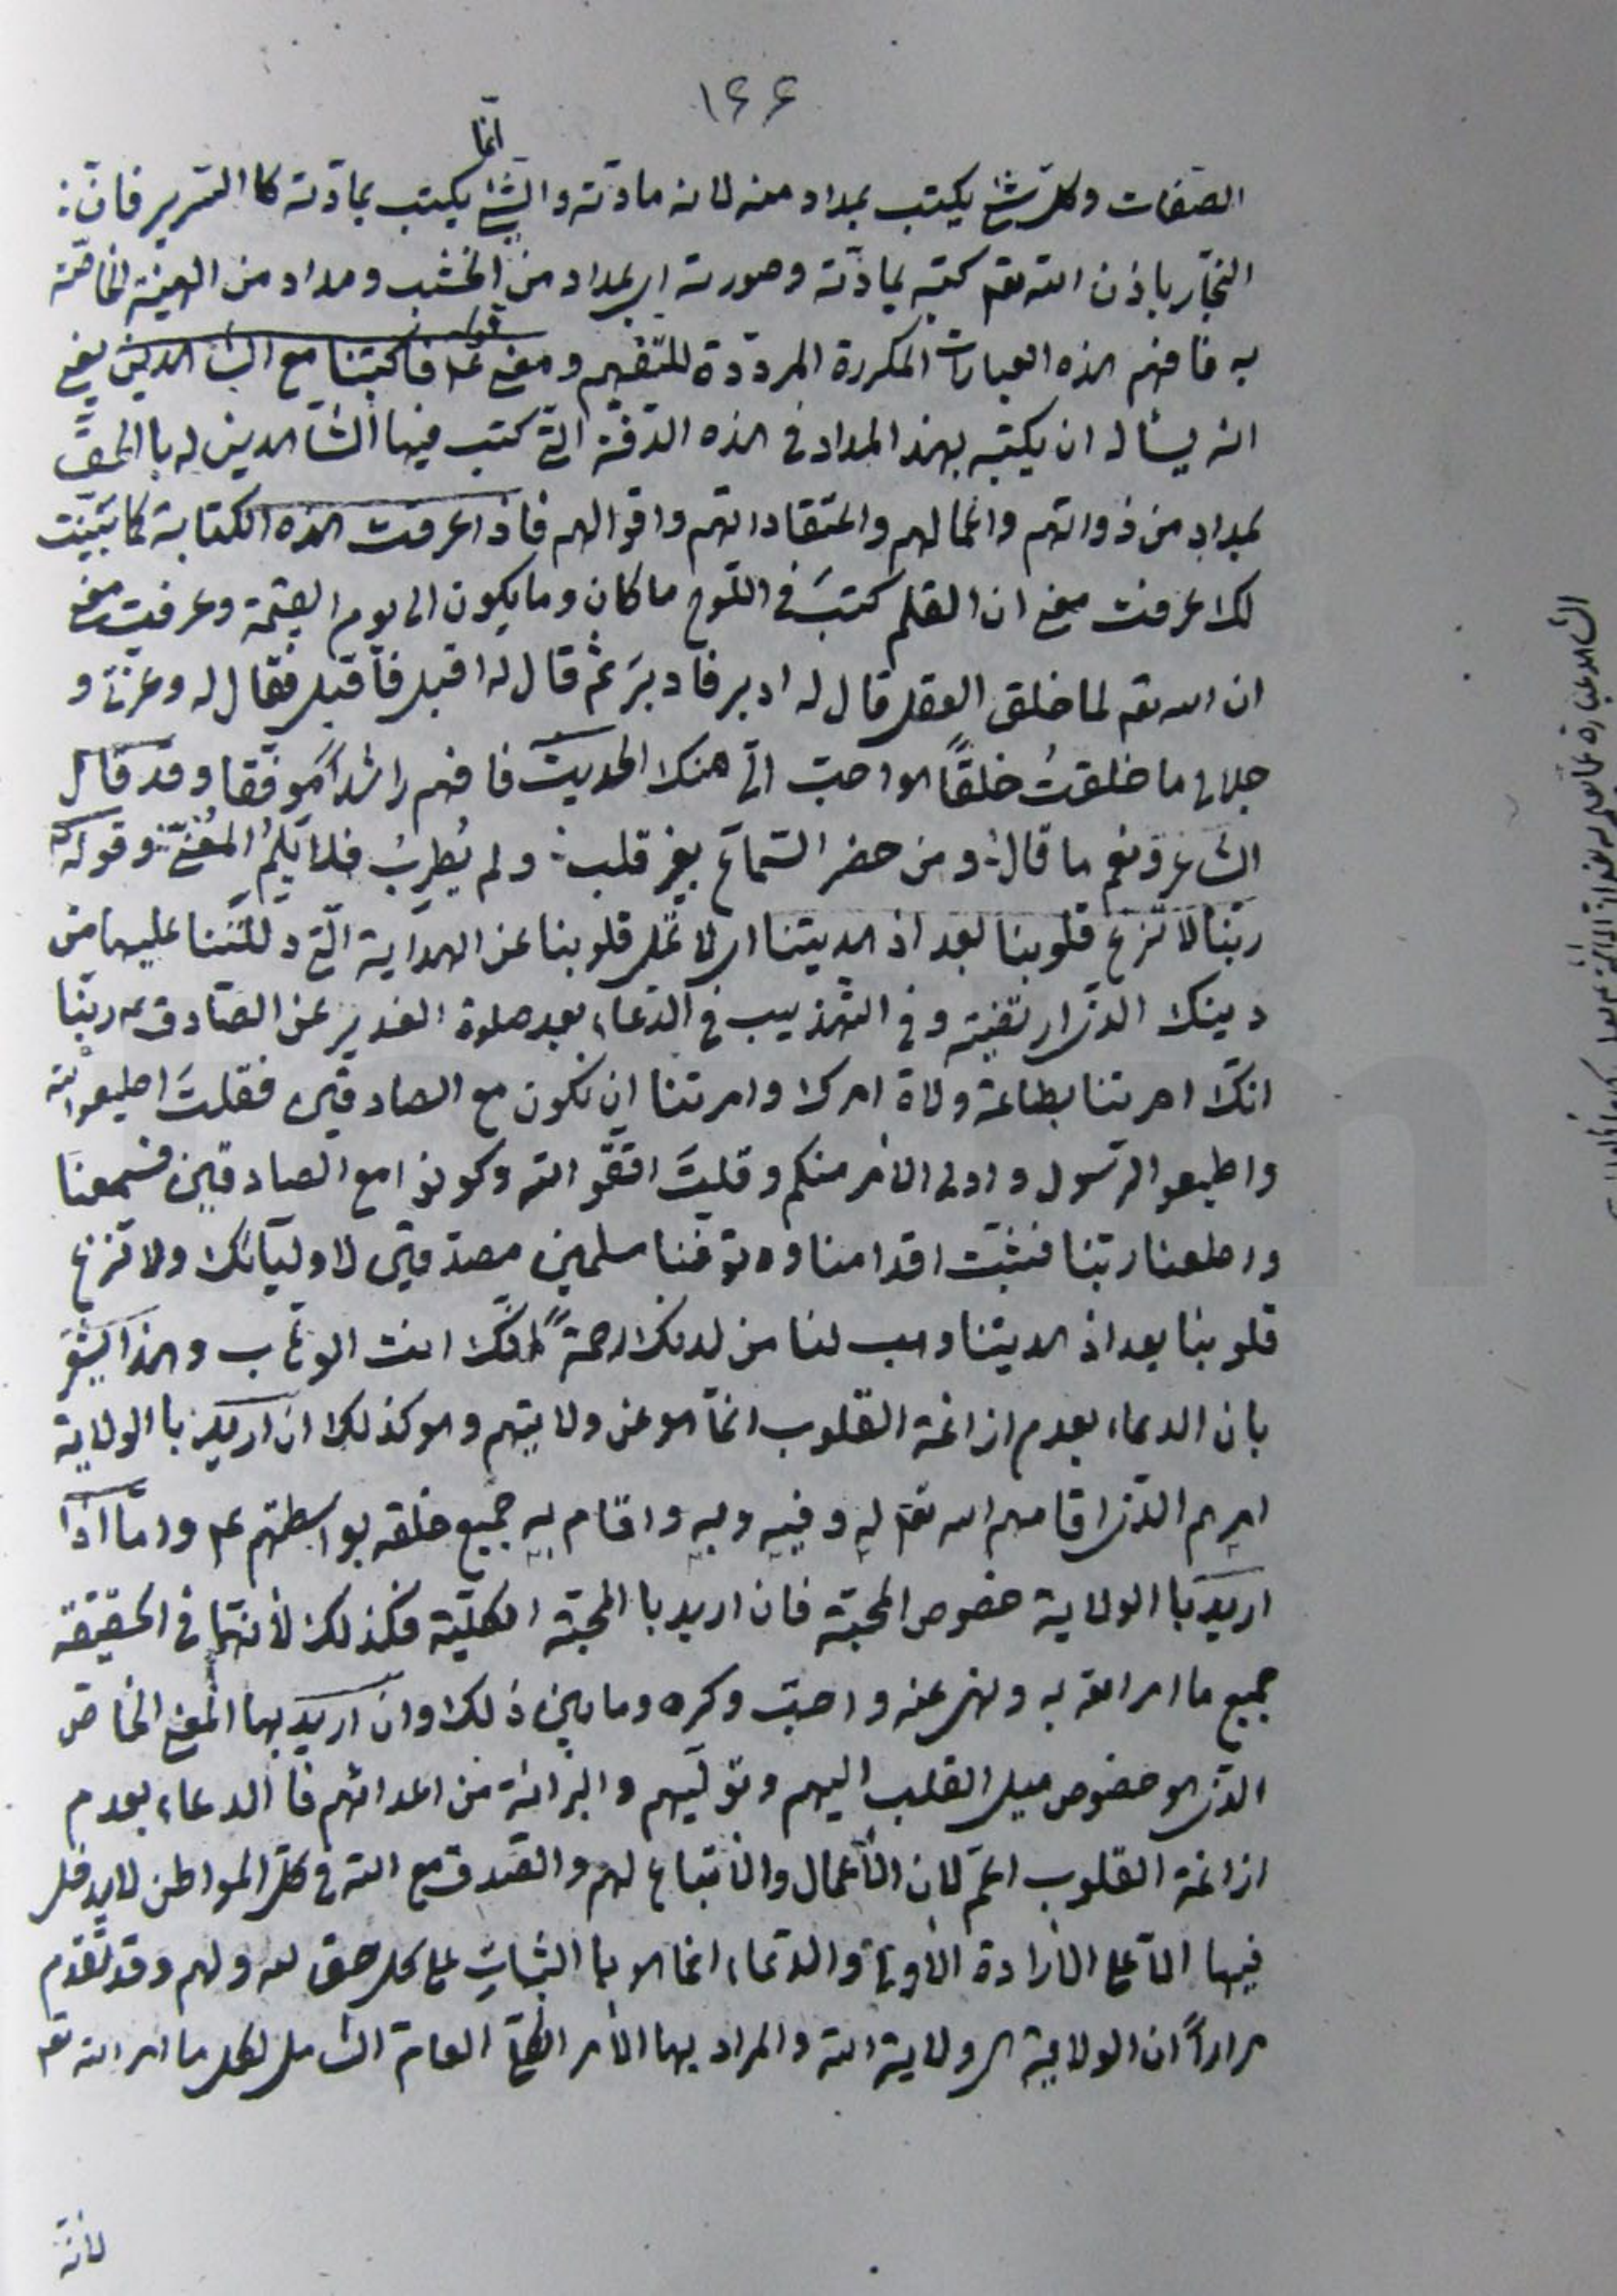 ١٦٦
الصفات وكل شئ يكتب بمداد منه لانه مادته والشئ انما يكتب بمادته كا السرير فان
النجار باذن الله تعم كتبه بمادته وصورته اى بمداد من الخشب ومداد من الهيئة الخاصة
به فافهم هذه العبارات المكررة المرددة للتفهيم ومعنى قوله عم فاكتبنا مع الشاهدين يعنى
انه يسأله ان يكتبه بهذا المداد فى هذه الدفة التى كتب فيها الشاهدين له با الحق
بمداد من ذواتهم واعمالهم واعتقاداتهم واقوالهم فاذا عرفت هذه الكتابة كما بينت
لك عرفت معنى ان القلم كتب فى اللوح ماكان ومايكون الى يوم القيمة وعرفت معنى
ان الله تعم لما خلق العقل قال له ادبر فادبر ثم قال له اقبل فاقبل فقال له وعزتى و
جلالى ما خلقتُ خلقاً هو احب الىّ منك الحديث فافهم راشداً موفقا وقد قال
الشاعر ونعم ما قال ومن حضر السماع بغير قلب ولم يُطرِب فلا يَلُمِ المُغنّى وقوله
ربنا لا تزغ قلوبنا بعد اذ هديتنا اى لا تمل قلوبنا عن الهداية التى دللتنا عليها من
دينك الذى ارتضيته وفى التهذيب فى الدعاء بعد صلوة الغدير عن الصادق عم ربنا
انك امرتنا بطاعة ولاة امرك وامرتنا ان نكون مع الصادقين فقلتَ اطيعوا الله
واطيعوا الرسول واولى الأمر منكم وقلتَ اتقو الله وكونوا مع الصادقين فسمعنا
واطعنا ربنا فثبت اقدامنا وتوفنا مسلمين مصدقين لاوليائك ولا تزغ
قلوبنا بعد اذ هديتنا وهب لنا من لدنك رحمةً انّك انت الوهاب وهذا يشعر
بان الدعاء بعدم ازاغة القلوب انما هو عن ولايتهم وهو كذلك ان اريد با الولاية
امرهم الذى اقامهم الله تعم له وفيه وبه واقام به جميع خلقه بواسطتهم عم واما اذا
اريد با الولاية خصوص المحبة فان اريد با المحبة الكلية فكذلك لأنها فى الحقيقة
جميع ما امر الله به ونهى عنه واحبّ وكره وما بين ذلك وان اريد بها المعنى الخاص
الذى هو خصوص ميل القلب اليهم وتوليهم والبرائة من اعدائهم فا الدعاء بعدم
ازاغة القلوب اعم لان الأعمال والأتباع لهم والصدق مع الله فى كل المواطن لايدخل
فيها الا على الأرادة والدعاء انما هو با الثبات على كل حق لله ولهم وقد تقدم
مراراً ان الولاية هى ولاية الله والمراد بها الأمر الكلى العام الشامل لكل ما امر الله تعم
لأنه